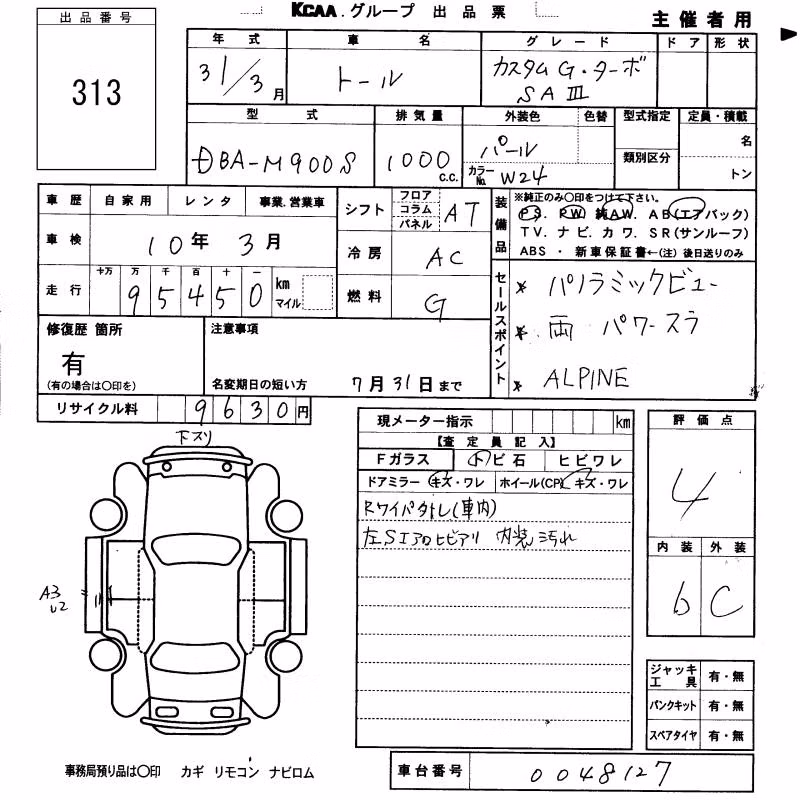 KCAA.グループ 出品票
主催者用
出品番号
313
年式 車名 グレード ドア 形状
31/3月 トール カスタムG・ターボ
SAⅢ
型式 排気量 外装色 色替 型式指定 定員・積載
DBA-M900S 1000 C.C. パール 類別区分 名
カラーNo. W24 トン
車歴 自家用 レンタ 事業.営業車
車検 10年3月
走行 十万 万 千 百 十 一
95450 km マイル
シフト フロア コラム パネル AT
冷房 AC
燃料 G
装備品
※純正のみ〇印をつけて下さい。
PS. PW 純AW. AB(エアバック)
TV. ナビ. カワ. SR(サンルーフ)
ABS ・ 新車保証書←(注)後日送りのみ
セールスポイント
* パノラミックビュー
* 両 パワースラ
* ALPINE
修復歴 箇所
有
(有の場合は〇印を)
注意事項
名変期日の短い方 7月31日まで
リサイクル料 9630円
下スリ
A3
U2
現メーター指示 km
【査定員記入】
Fガラス トビ石 ヒビワレ
ドアミラー キズ・ワレ ホイール(CP) キズ・ワレ
Rワイパ外レ(車内)
左SIアロヒビアリ 内装汚れ
評価点
4
内装 外装
b C
ジャッキ工具 有・無
パンクキット 有・無
スペアタイヤ 有・無
事務局預り品は〇印 カギ リモコン ナビロム
車台番号 0048127